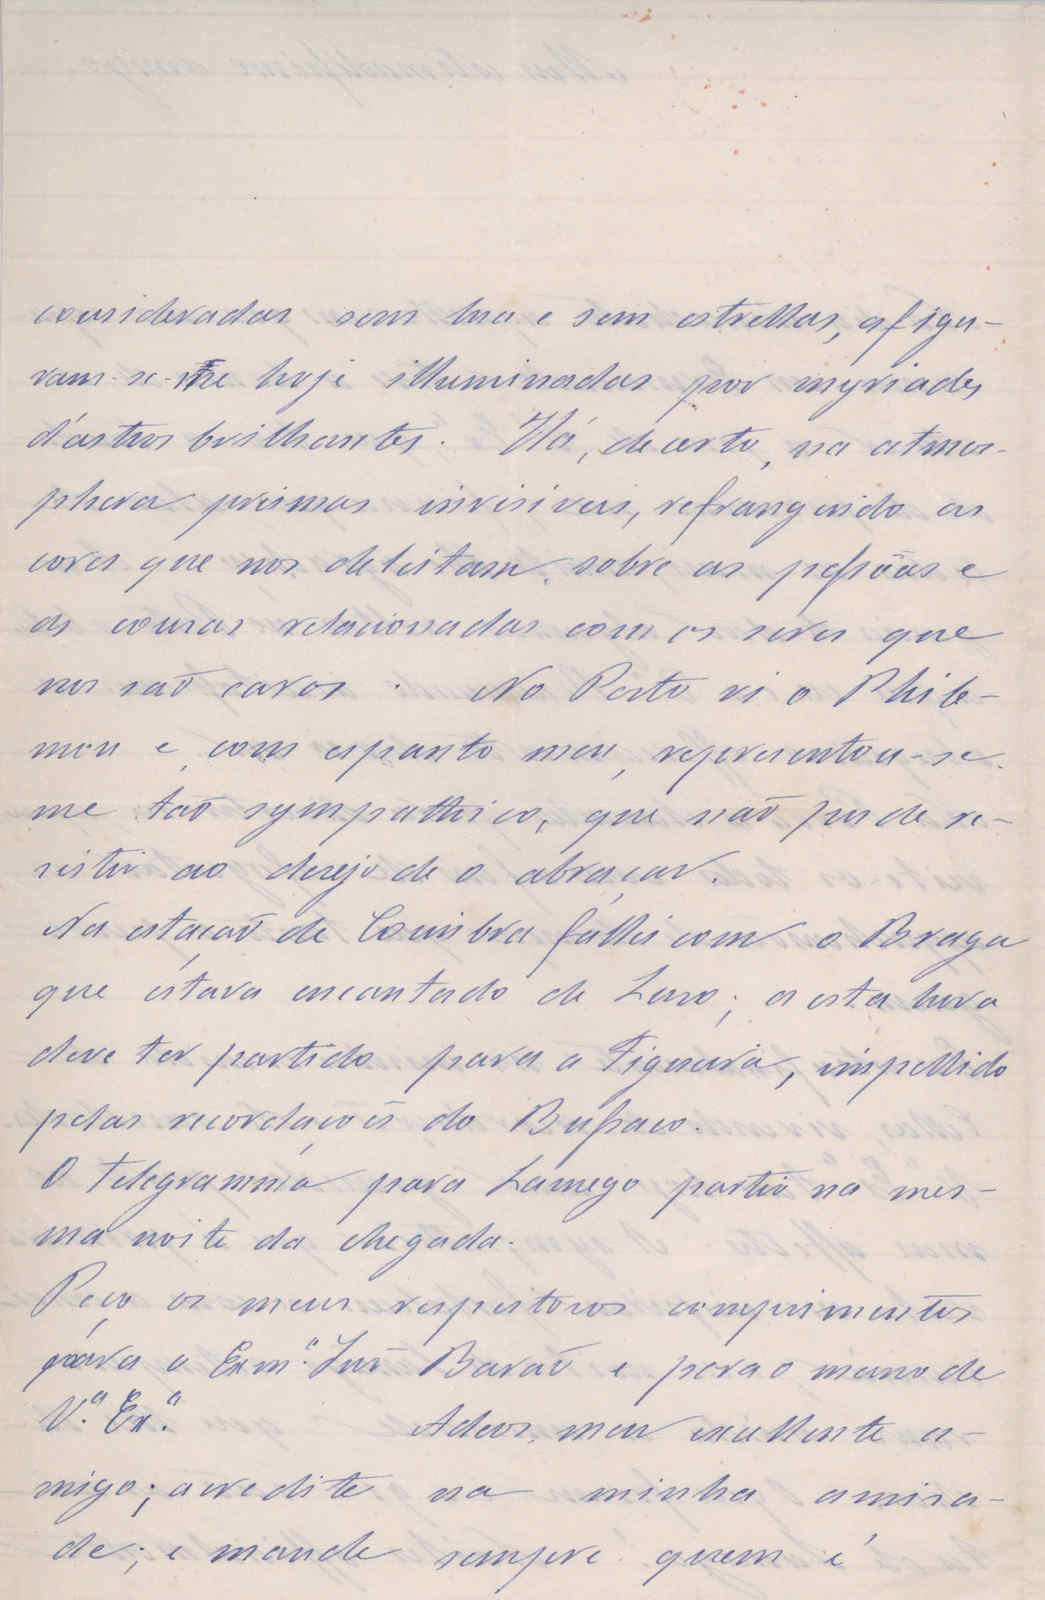 consideradas sem lua e sem estrellas, afigu-
ram-se-me hoje illuminadas por myriades
d'astros brilhantes. Há, decerto, na atmos-
phera prismas invisiveis, refrangindo as
cores que nos deleitam, sobre as pessôas e
as cousas relacionadas com os seres que
nos saõ caros. No Porto vi o Phile-
mon e, com espanto meu, representou-se-
me taõ sympathico, que naõ pude re-
sistir ao desejo de o abraçar.
Na estaçaõ de Coimbra fallei com o Braga
que estava encantado de Luso; a esta hora
deve ter partido para a Figueira, impellido
pelas recordações do Bussaco.
O telegramma para Lamego partiu na mes-
ma noite da chegada.
Peço os meus respeitosos comprimentos
para o Exm.º Snr Baraõ e para o mano de
V.ª Ex.ª Adeos, meu excellente a-
migo; acredite na minha amisa-
de; e mande sempre quem é